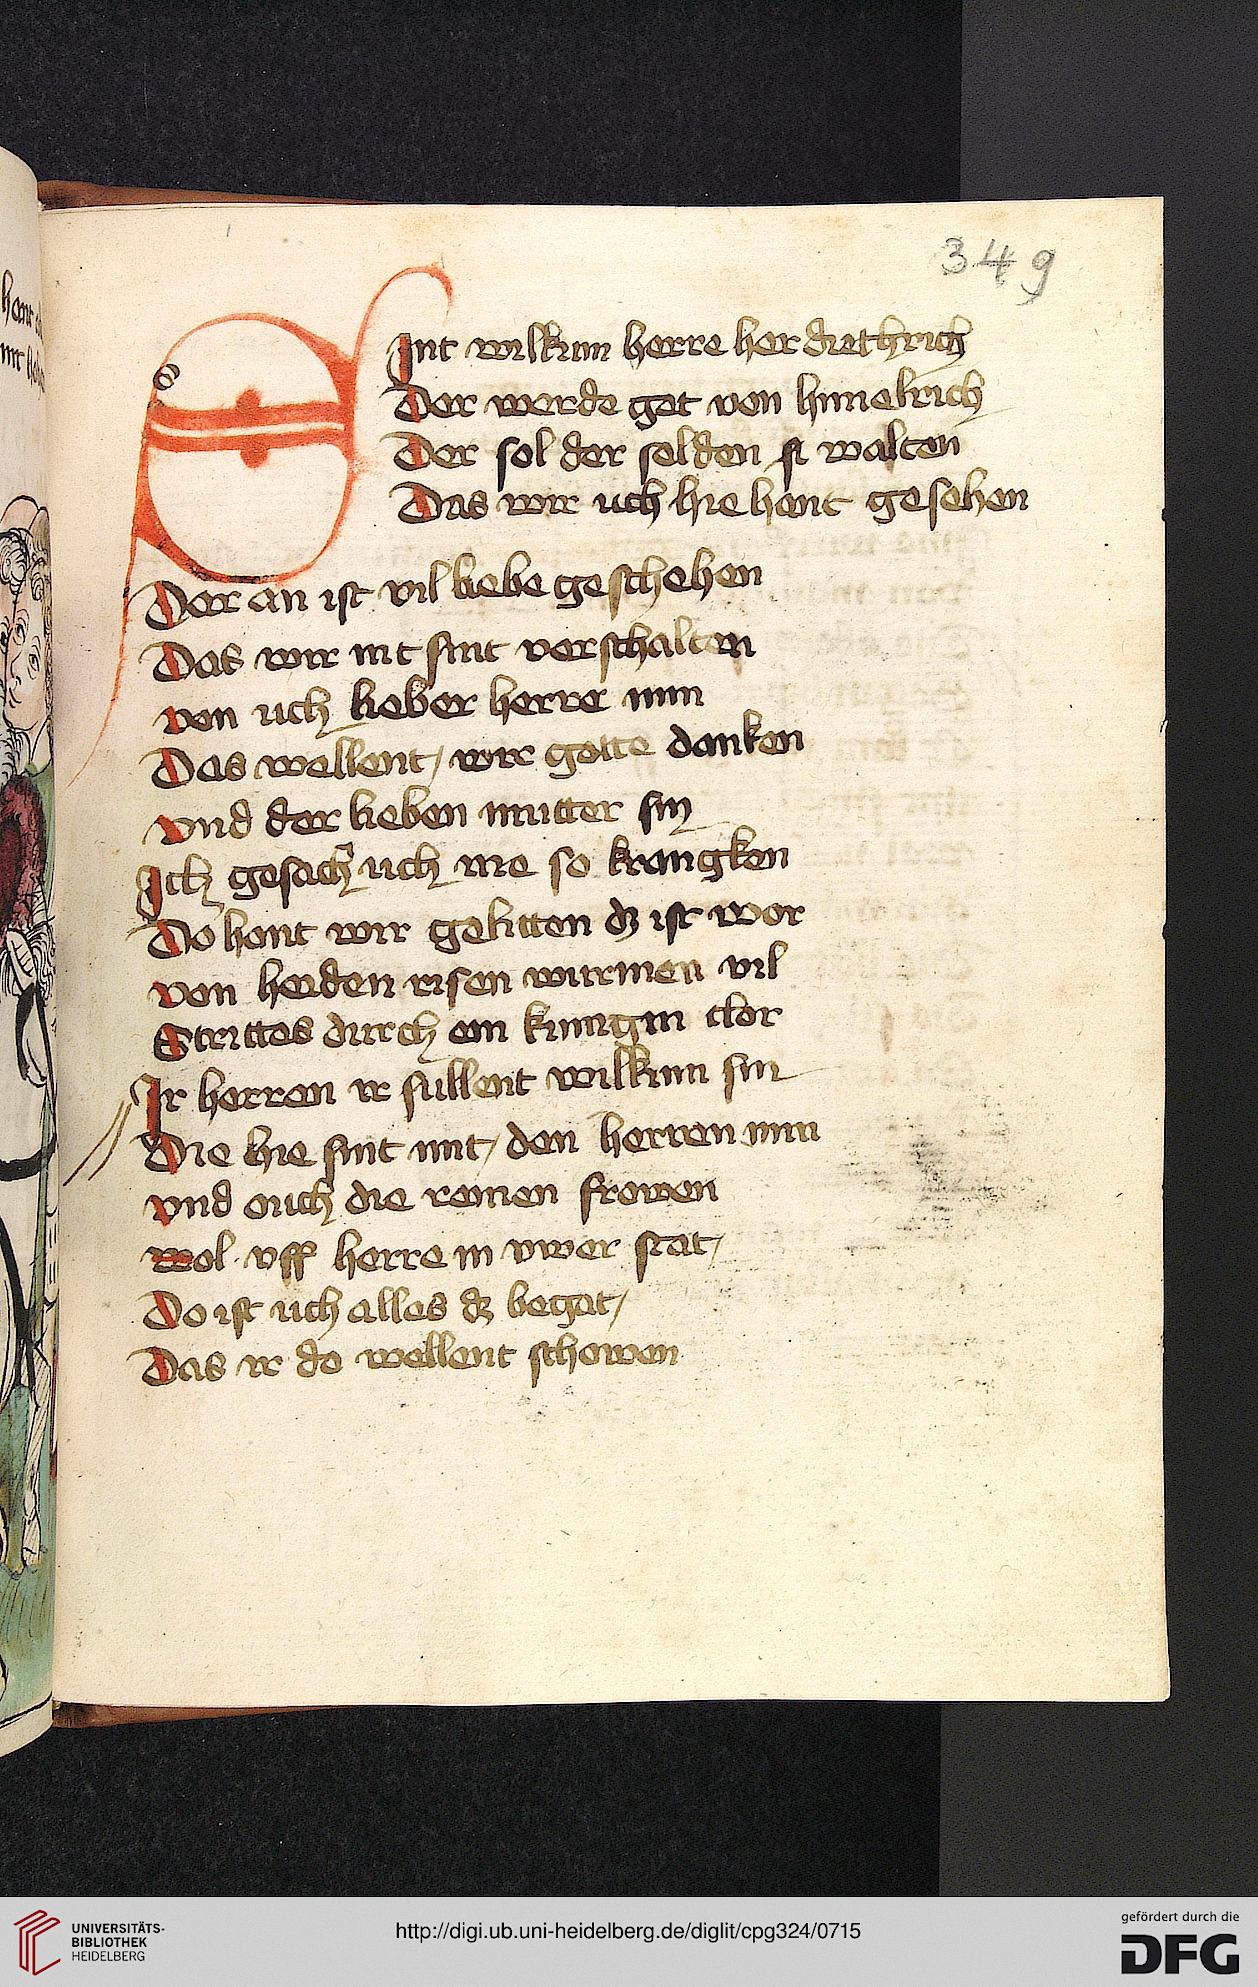 349
SInt wilkum herre her diethrich
Der werde got von himelrich
Der sol der selden si walten
Das wir uch hie hant gesehen
Dor an ist vil liebe geschehen
Das wir nit sint verschalten
von uch lieber herre min
Das wellent wir gotte danken
vnd der lieben mutter sin
Ich gesach uch nie so krangken
Do hant wir gelitten dz ist wor
von heiden risen wurmen vil
Strittes durch ein kunigin clor
Ir herren ir sullent wilkum sin
Die hie sint mit den herren min
vnd ouch die reinen frowen
wol uff herre in uwer stat
Do ist uch alles dz begat
Das ir do wellent schowen
UNIVERSITÄTS-
BIBLIOTHEK
HEIDELBERG
http://digi.ub.uni-heidelberg.de/diglit/cpg324/0715
gefördert durch die
DFG